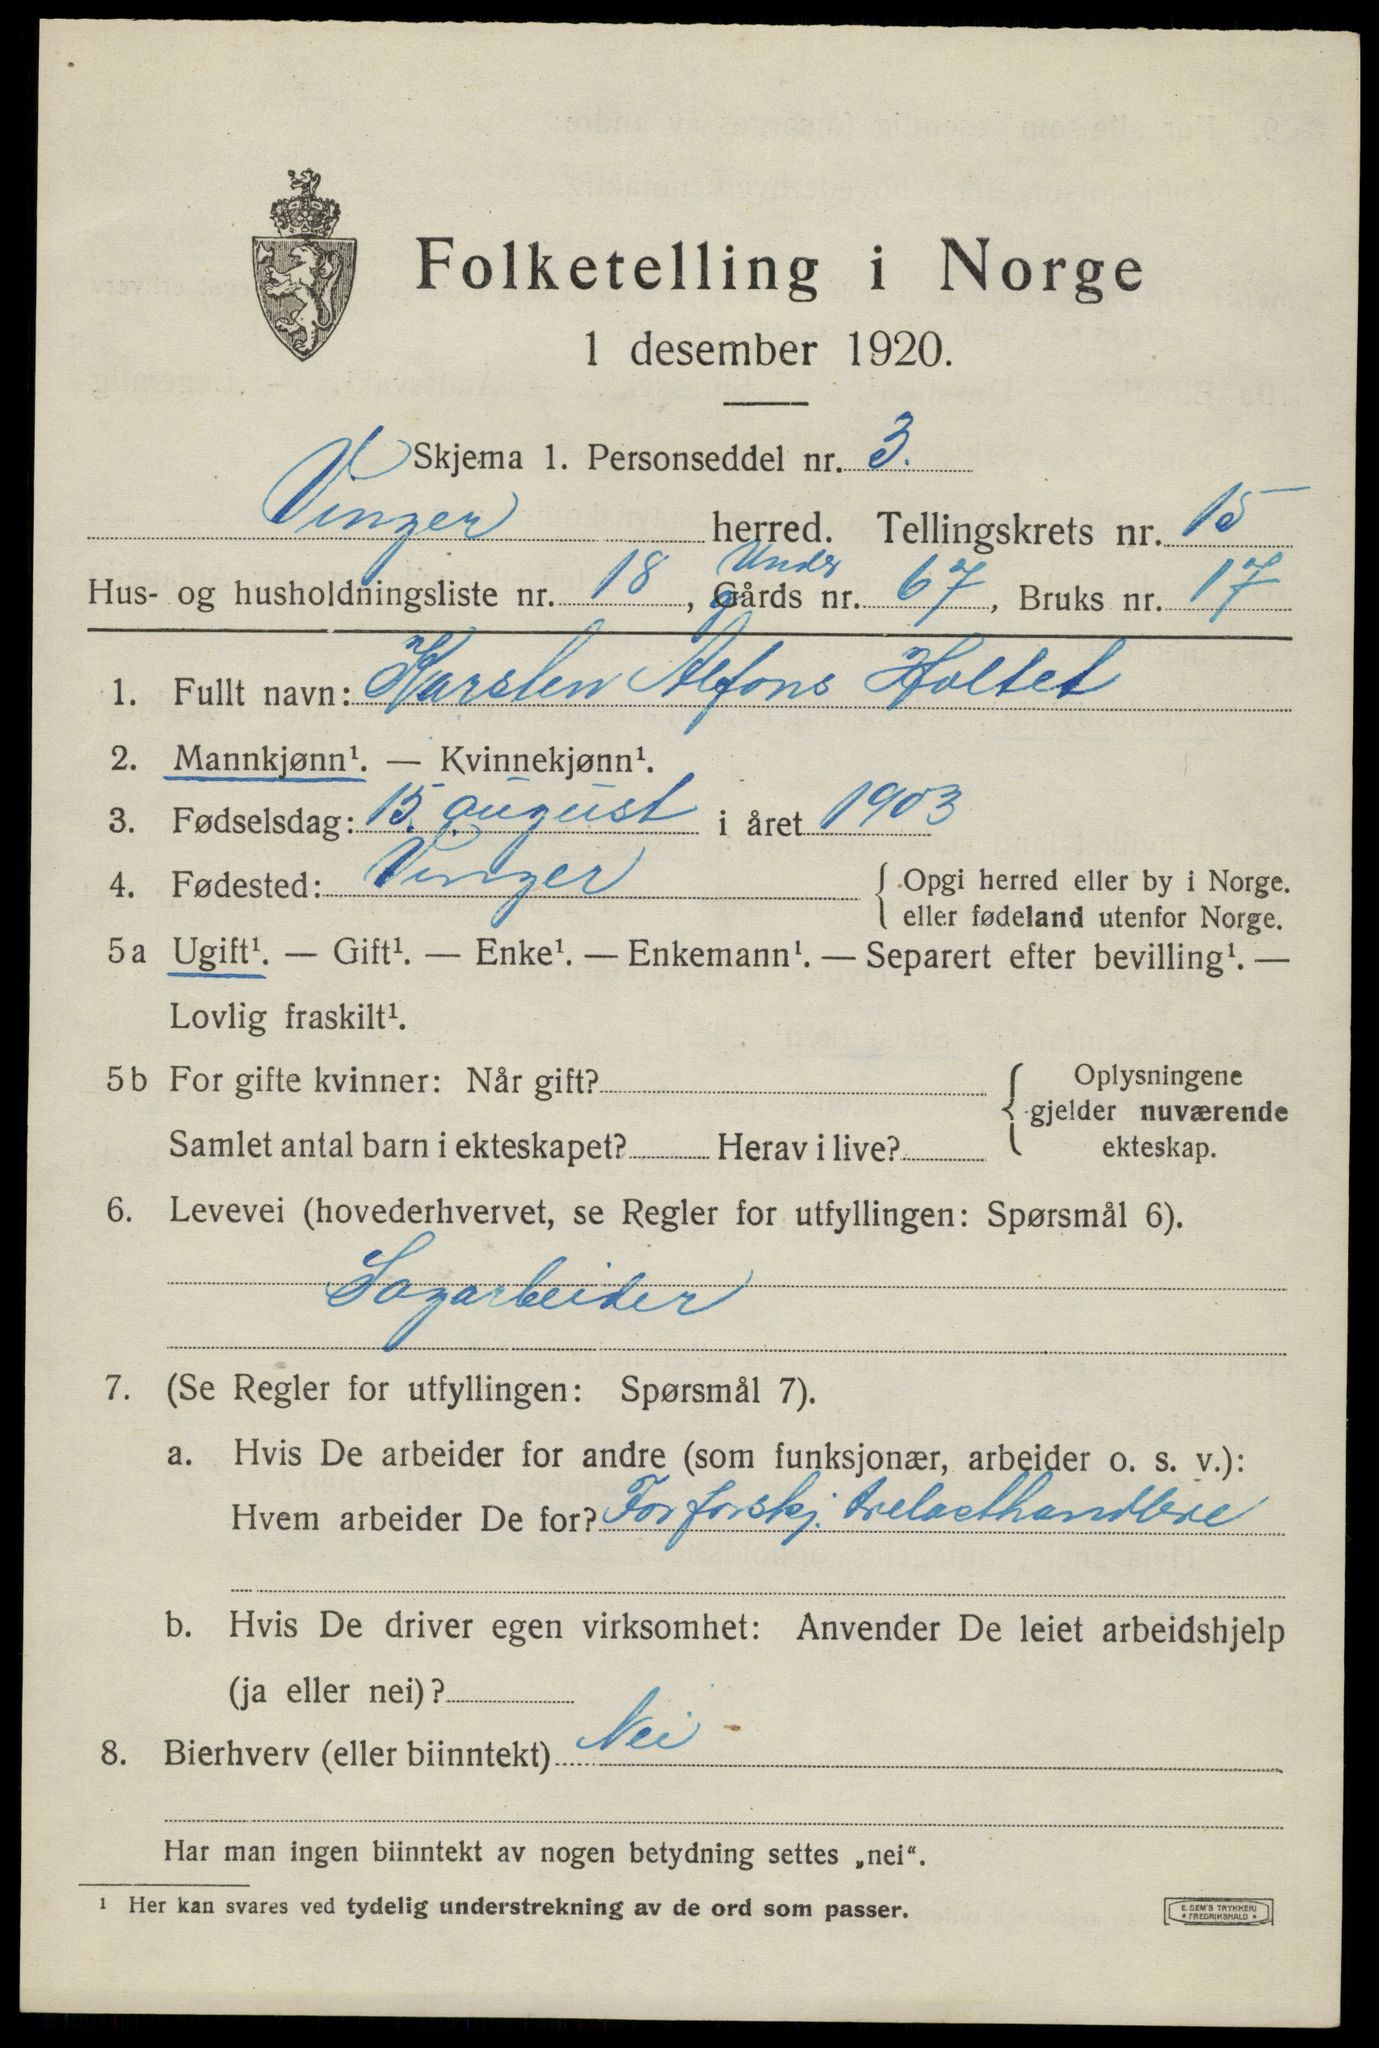 Folketelling i Norge
1 desember 1920.
Skjema 1. Personseddel nr. 3.
Vinger herred. Tellingskrets nr. 15
Under
Hus- og husholdningsliste nr. 18, Gårds nr. 67, Bruks nr. 17
1. Fullt navn: Karsten Alfons Holtet
2. Mannkjønn¹. — Kvinnekjønn¹.
3. Fødselsdag: 15. august i året 1903
4. Fødested: Vinger { Opgi herred eller by i Norge.
eller fødeland utenfor Norge.
5a Ugift¹. — Gift¹. — Enke¹. — Enkemann¹. — Separert efter bevilling¹. —
Lovlig fraskilt¹.
5b For gifte kvinner: Når gift? { Oplysningene
gjelder nuværende
Samlet antal barn i ekteskapet? Herav i live? ekteskap.
6. Levevei (hovederhvervet, se Regler for utfyllingen: Spørsmål 6).
Sagarbeider
7. (Se Regler for utfyllingen: Spørsmål 7).
a. Hvis De arbeider for andre (som funksjonær, arbeider o. s. v.):
Hvem arbeider De for? For forskj. trelasthandlere
b. Hvis De driver egen virksomhet: Anvender De leiet arbeidshjelp
(ja eller nei)?
8. Bierhverv (eller biinntekt) Nei
Har man ingen biinntekt av nogen betydning settes „nei“.
¹ Her kan svares ved tydelig understrekning av de ord som passer.
E. SEM'S TRYKKERI
* FREDRIKSHALD *